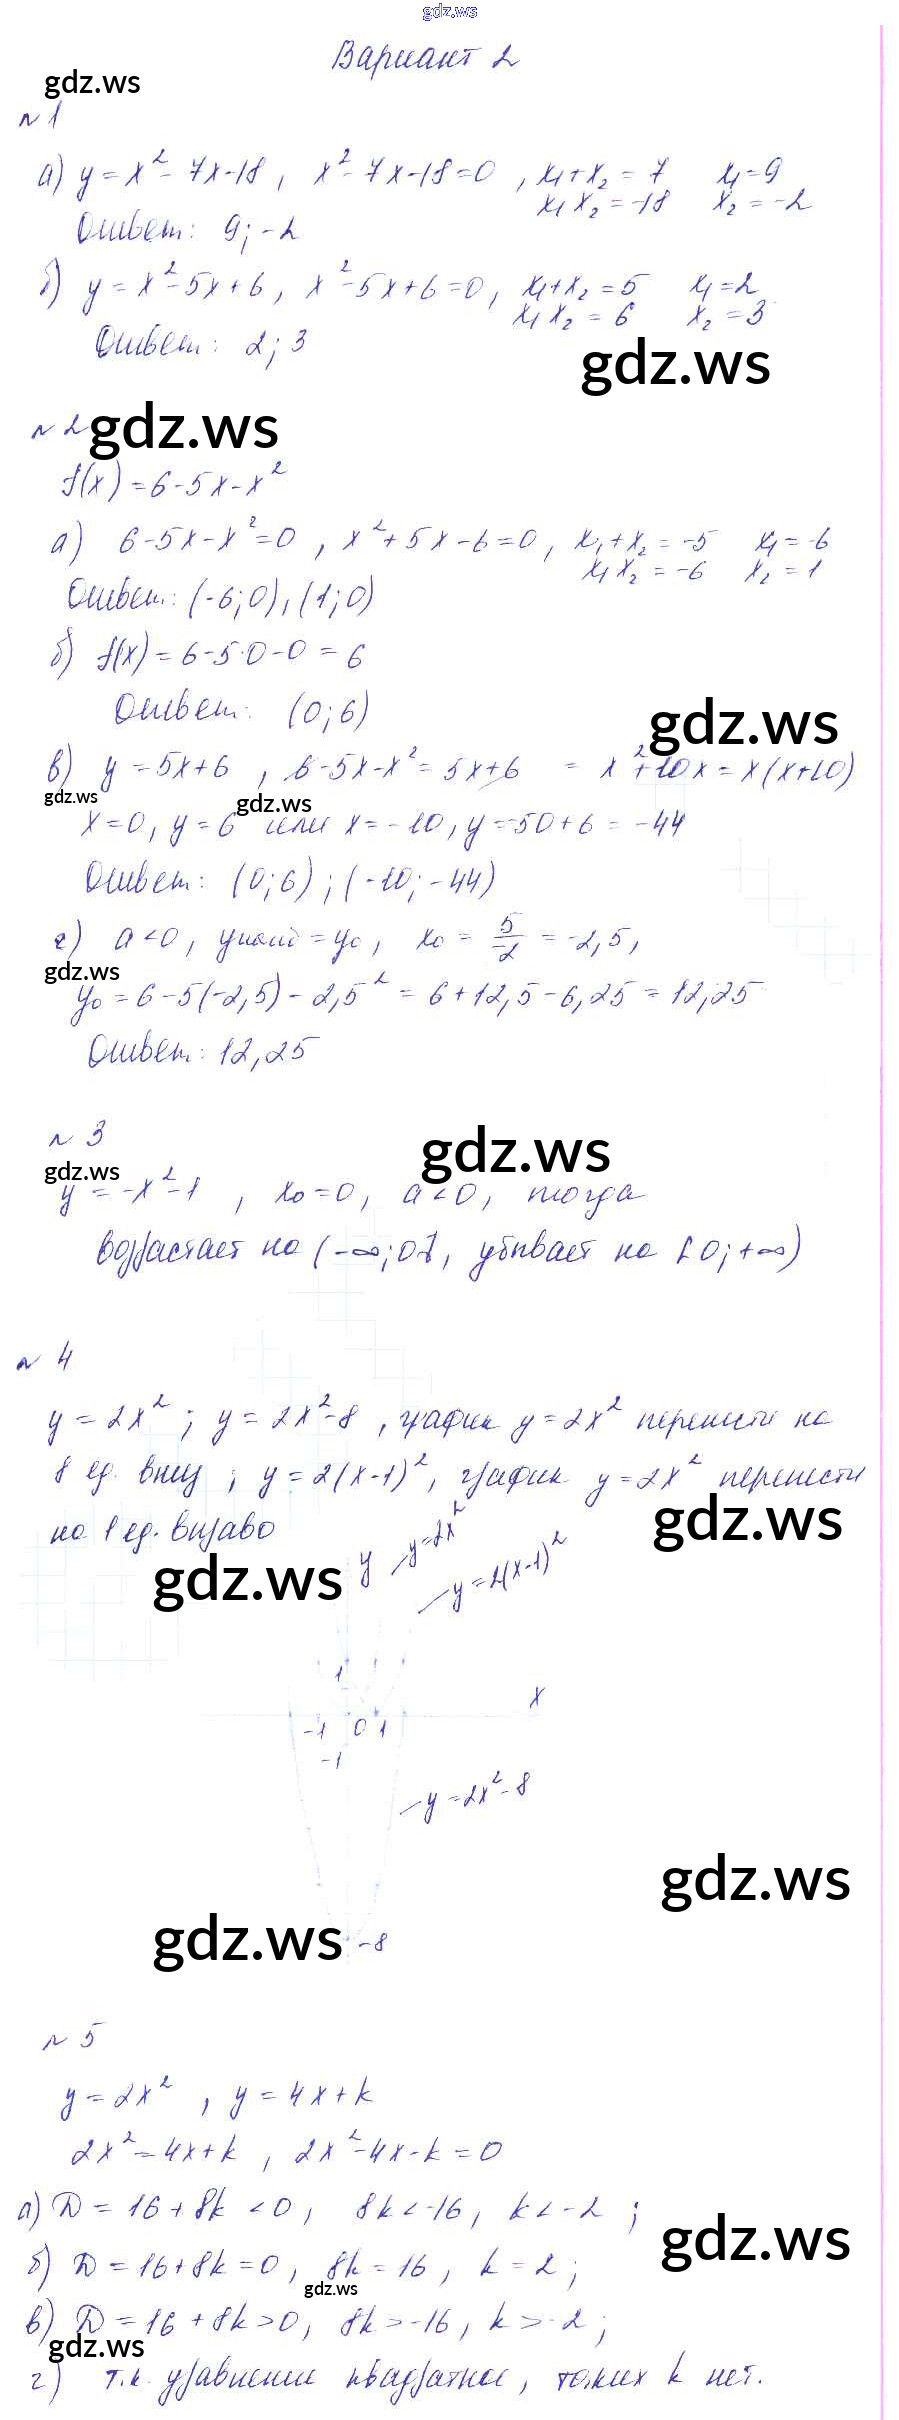 gdz.ws
Вариант 2
gdz.ws
№ 1
а) y = x² - 7x - 18, x² - 7x - 18 = 0, x₁ + x₂ = 7 x₁ = 9
x₁ x₂ = -18 x₂ = -2
Ответ: 9; -2
б) y = x² - 5x + 6, x² - 5x + 6 = 0, x₁ + x₂ = 5 x₁ = 2
x₁ x₂ = 6 x₂ = 3
Ответ: 2; 3
gdz.ws
№ 2 gdz.ws
f(x) = 6 - 5x - x²
а) 6 - 5x - x² = 0, x² + 5x - 6 = 0, x₁ + x₂ = -5 x₁ = -6
x₁ x₂ = -6 x₂ = 1
Ответ: (-6; 0), (1; 0)
б) f(x) = 6 - 5·0 - 0 = 6
Ответ: (0; 6)
gdz.ws
в) y = 5x + 6, 6 - 5x - x² = 5x + 6 = x² + 10x = x(x + 10)
gdz.ws gdz.ws
x = 0, y = 6 или x = -10, y = -50 + 6 = -44
Ответ: (0; 6); (-10; -44)
г) a < 0, yнаиб = y₀, x₀ = 5/-2 = -2,5,
gdz.ws
y₀ = 6 - 5(-2,5) - 2,5² = 6 + 12,5 - 6,25 = 12,25
Ответ: 12,25
№ 3
gdz.ws
gdz.ws
y = -x² - 1, x₀ = 0, a < 0, тогда
возрастает на (-∞; 0], убывает на [0; +∞)
№ 4
y = 2x²; y = 2x² - 8, график y = 2x² перенести на
8 ед. вниз; y = 2(x - 1)², график y = 2x² перенести
на 1 ед. вправо
gdz.ws
gdz.ws
y y = 2x²
y = 2(x - 1)²
1
x
-1 0 1
-1
y = 2x² - 8
gdz.ws
gdz.ws
-8
№ 5
y = 2x², y = 4x + k
2x² = 4x + k, 2x² - 4x - k = 0
а) D = 16 + 8k < 0, 8k < -16, k < -2;
gdz.ws
б) D = 16 + 8k = 0, 8k = 16, k = 2;
gdz.ws
в) D = 16 + 8k > 0, 8k > -16, k > -2;
gdz.ws
г) т.к. уравнение квадратное, таких k нет.